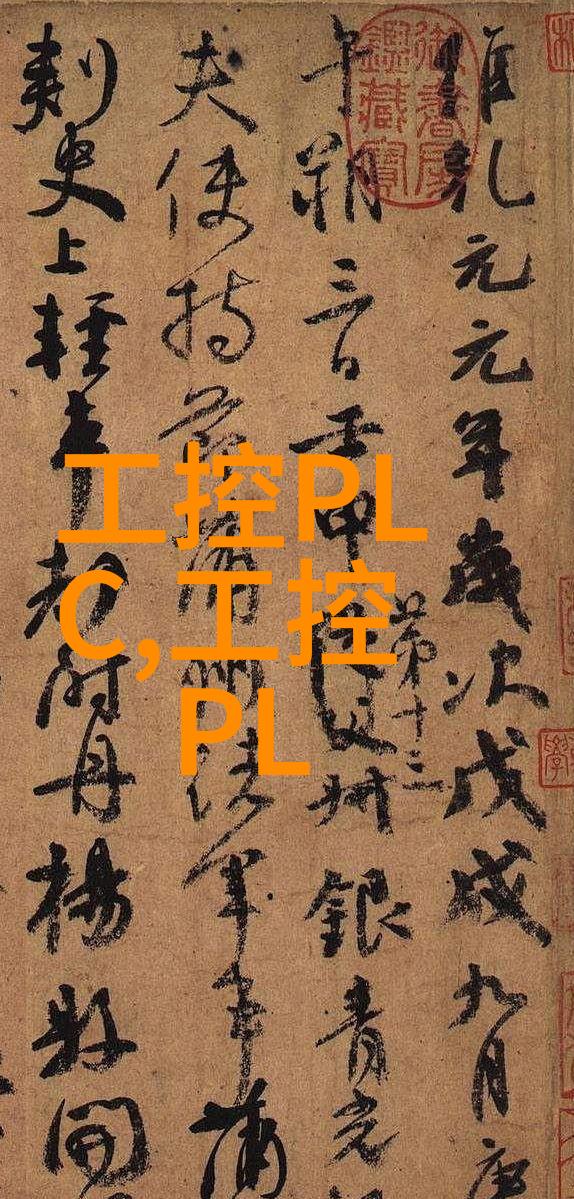 維乾元元年歲次戊戌九月庚
午朔三日壬申
第十三
叔銀青光
夫使持節蒲州諸軍事蒲
刺史上輕車都尉丹楊縣開
御書房鑑藏寶
工控PL
C,工控
PL